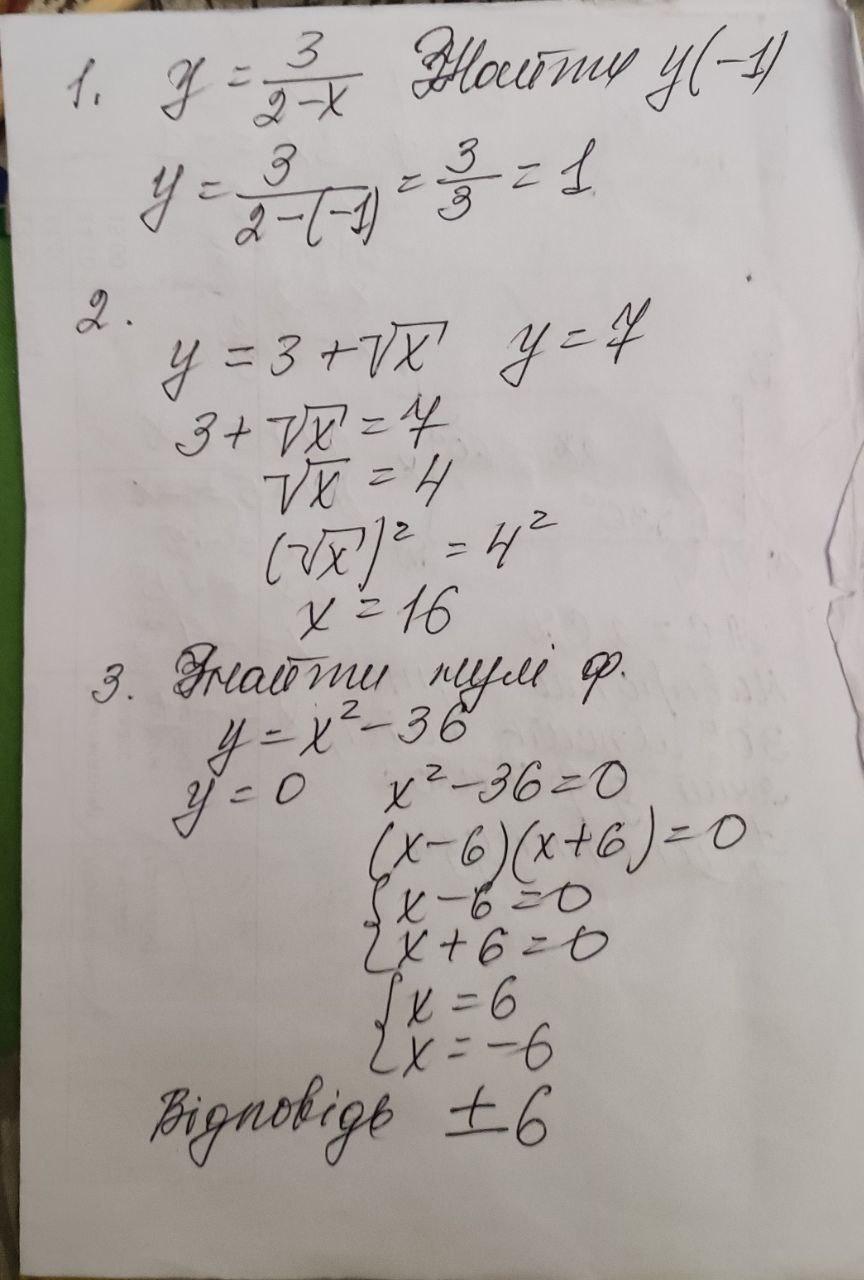 1. y = 3/(2-x) Знайти y(-1)
y = 3/(2-(-1)) = 3/3 = 1
2.
y = 3 + √x y = 7
3 + √x = 7
√x = 4
(√x)² = 4²
x = 16
3. Знайти нулі ф.
y = x² - 36
y = 0 x² - 36 = 0
(x-6)(x+6) = 0
{ x - 6 = 0
{ x + 6 = 0
{ x = 6
{ x = -6
Відповідь ±6